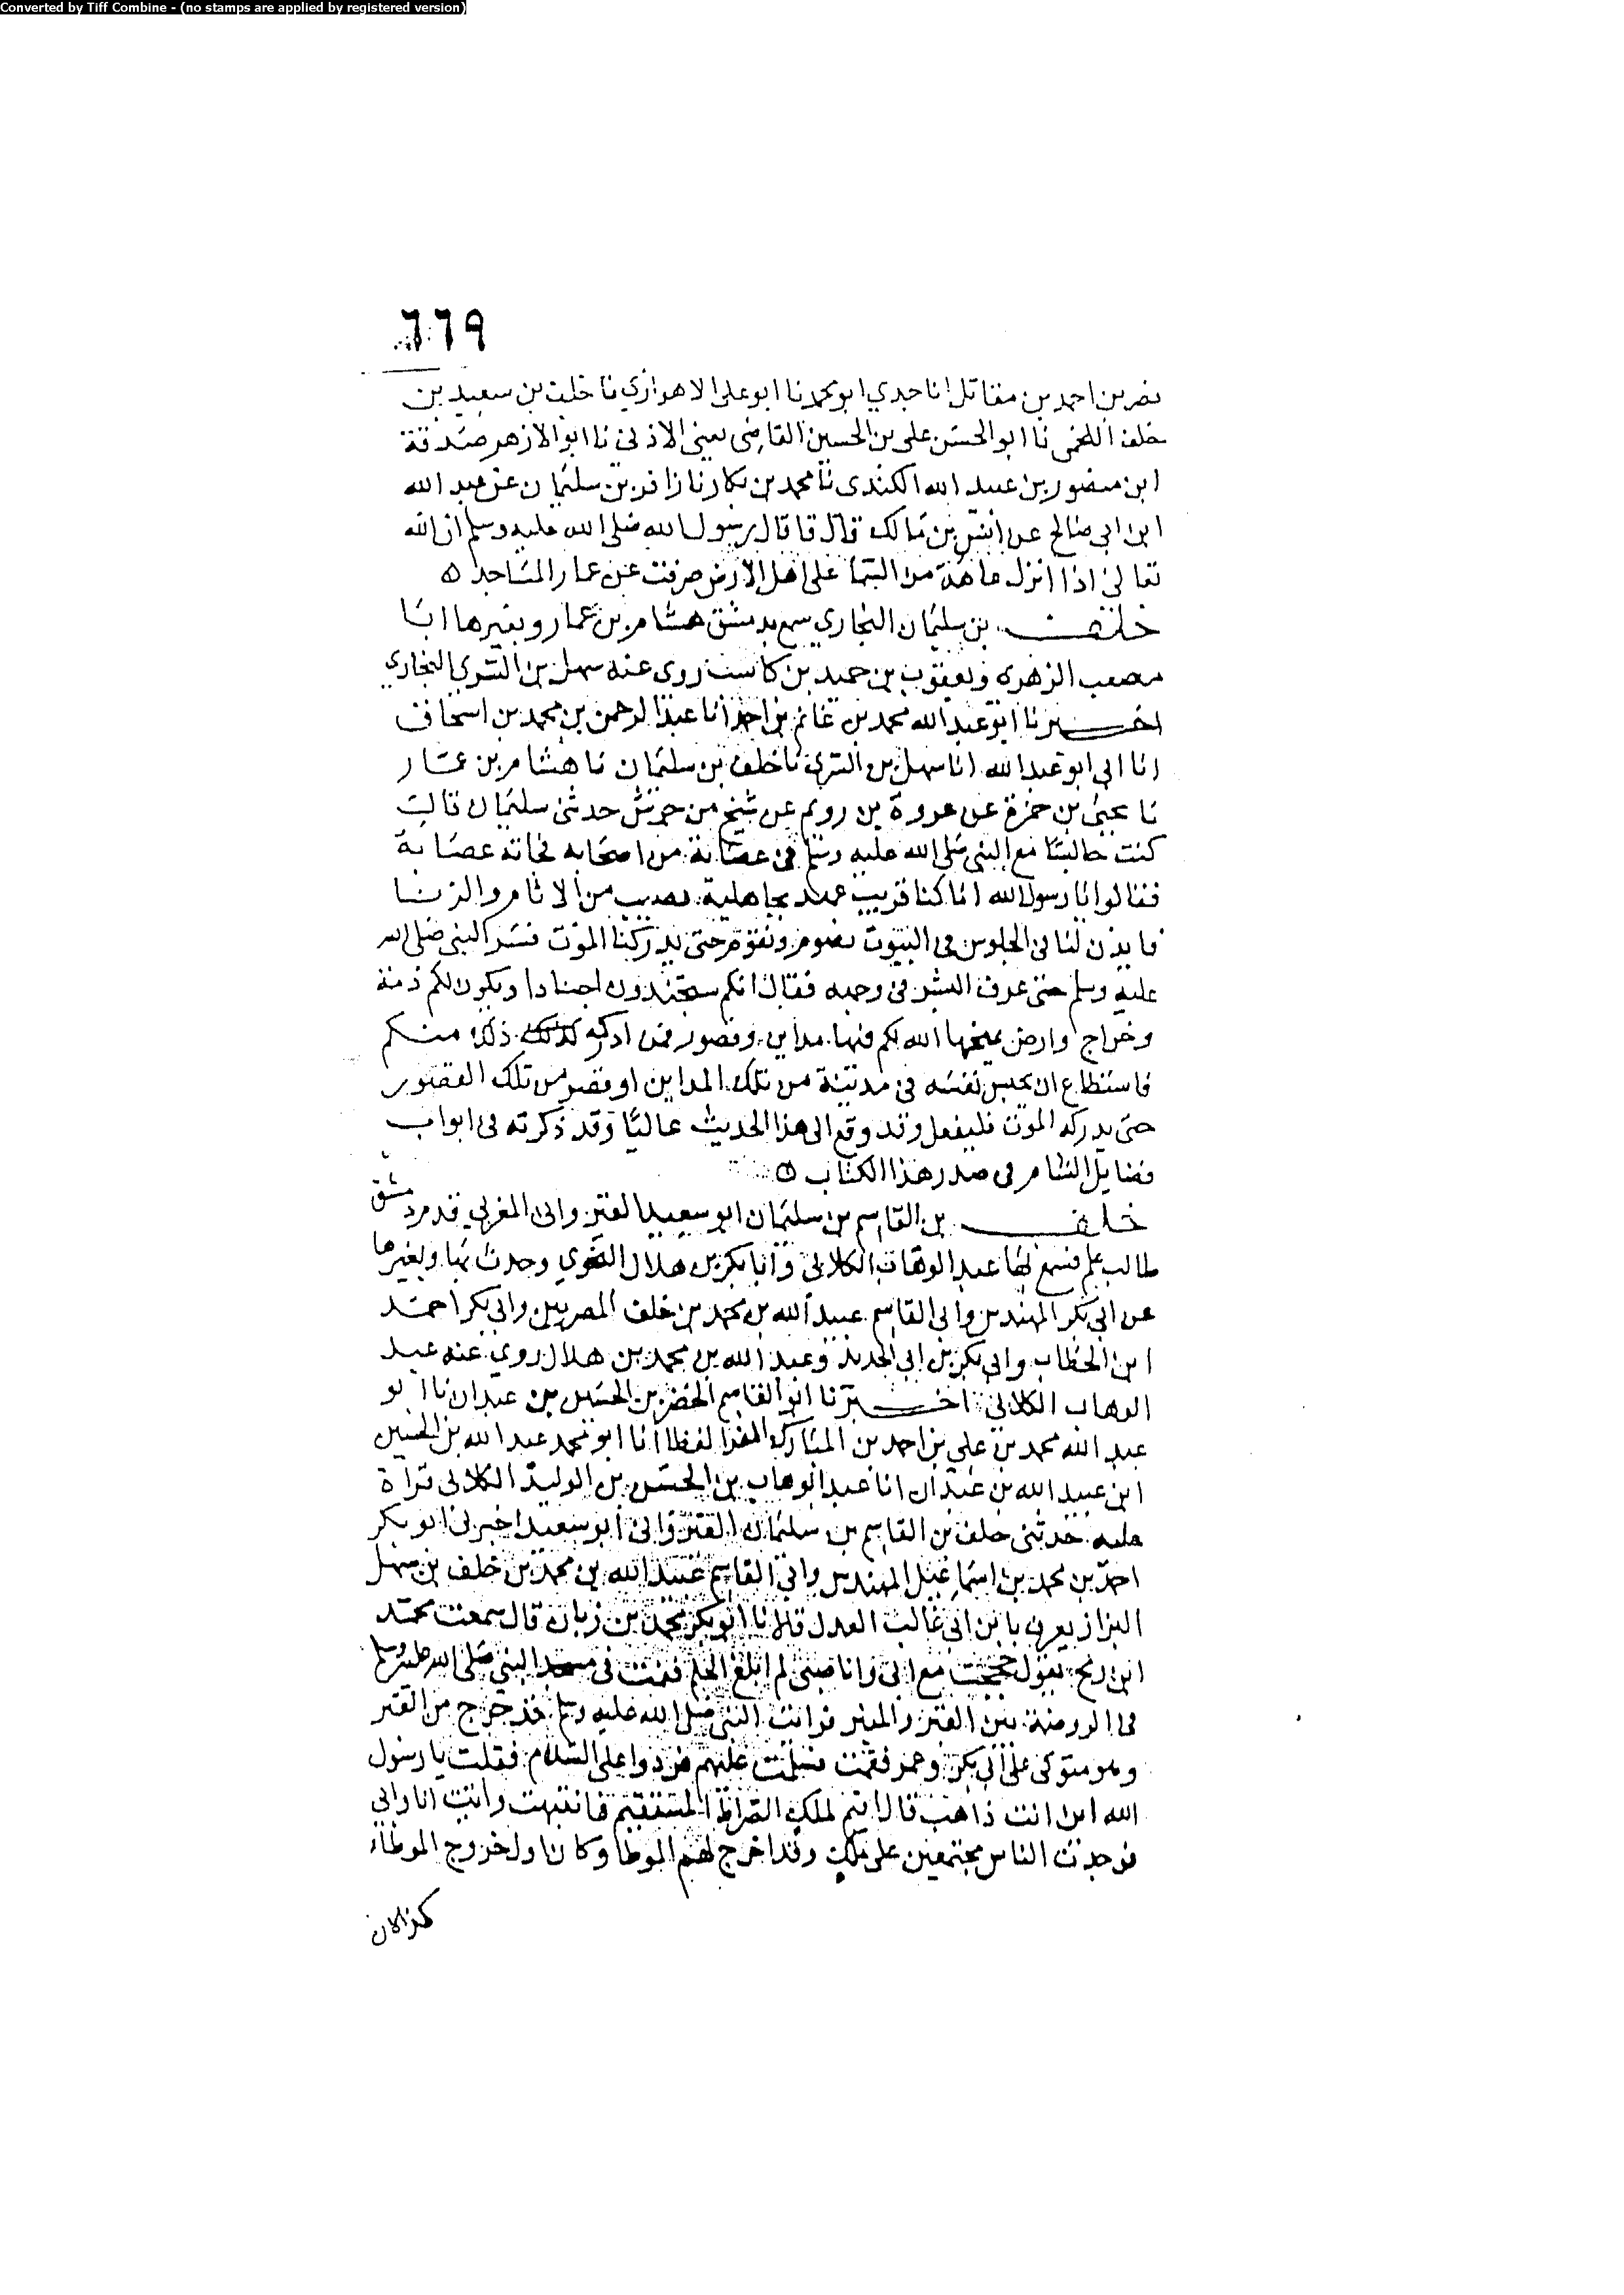 Converted by Tiff Combine - (no stamps are applied by registered version)
٦٦٩
نصر بن احمد بن مقاتل انا جدي ابو محمد نا ابو على الاهوازي نا خلف بن سعيد بن
خلف اللخمى نا ابو الحسن على بن الحسين القاضى يعنى الاذنى نا ابو الازهر صدقة
ابن منصور بن عبيد الله الكندى نا محمد بن بكار نا زافر بن سليمان عن عبد الله
ابن ابى صالح عن انس بن مالك قال قال رسول الله صلى الله عليه وسلم ان الله
تعالى اذا انزل عاهة من السما على اهل الارض صرفت عن عمار المساجد ه
خلف بن سليمان البخاري سمع بدمشق هشام بن عمار وبغيرها ابا
مصعب الزهرى ويعقوب بن حميد بن كاسب روى عنه سهل بن السري البخاري
اخبرنا ابو عبد الله محمد بن غانم بن احمد انا عبد الرحمن بن محمد بن اسحاق
انا ابى ابو عبد الله انا سهل بن السرى نا خلف بن سليمان نا هشام بن عمار
نا يحيى بن حمزة عن عروة بن رويم عن شيخ من جرش حدثنى سليمان قال
كنت جالسا مع النبى صلى الله عليه وسلم فى عصابة من اصحابه فجاته عصابة
فقالوا يا رسول الله انا كنا قريب عهد بجاهلية نصيب من الاثام والزنا
فايذن لنا فى الجلوس فى البيوت نصوم ونقوم حتى يدركنا الموت فسر النبى صلى الله
عليه وسلم حتى عرف البشر فى وجهه فقال انكم ستجندون اجنادا ويكون لكم ذمة
وخراج وارض يمنحها الله لكم فيها مداين وقصور فمن ادركه ذلك منكم
فاستطاع ان يحبس نفسه فى مدينة من تلك المداين او قصر من تلك القصور
حتى يدركه الموت فليفعل وقد وقع الى هذا الحديث عاليا وقد ذكرته فى ابواب
فضايل الشام فى صدر هذا الكتاب ه
خلف بن القاسم بن سليمان ابو سعيد القيروانى المغربي قدم دمشق
طالب علم فسمع بها عبد الوهاب الكلابى وابا بكر بن هلال النحوي وحدث بها وبغيرها
عن ابى بكر المهندس وابى القاسم عبيد الله بن محمد بن خلف المصريين وابى بكر احمد
ابن الخطاب وابى بكر بن ابى الحديد وعبد الله بن محمد بن هلال روى عنه عبد
الوهاب الكلابى اخبرنا ابو القاسم الخضر بن الحسين بن عبدان نا ابو
عبد الله محمد بن على بن احمد بن المبارك الفرا لفظا انا ابو محمد عبد الله بن الحسين
ابن عبيد الله بن عبدان انا عبد الوهاب بن الحسن بن الوليد الكلابى قراة
عليه حدثنى خلف بن القاسم بن سليمان القيروانى ابو سعيد اخبرنى ابو بكر
احمد بن محمد بن اسماعيل المهندس وابى القاسم عبيد الله بن محمد بن خلف بن سهل
البزاز يعرف بابن ابى غالب العدل قالا نا ابو بكر محمد بن زبان قال سمعت محمد
ابن رمح يقول حججت مع ابى وانا صبى لم ابلغ الحلم فنمت فى مسجد النبى صلى الله عليه وسلم
فى الروضة بين القبر والمنبر فرايت النبى صلى الله عليه وسلم قد خرج من القبر
وهو متوكى على ابى بكر وعمر فقمت فسلمت عليهم فردوا على السلام فقلت يا رسول
الله اين انت ذاهب قال اقيم لملك الصراط المستقيم فانتبهت واتيت انا وابى
فوجدت الناس مجتمعين على ملك وقد اخرج لهم الموطا وكان اول خروج الموطاء